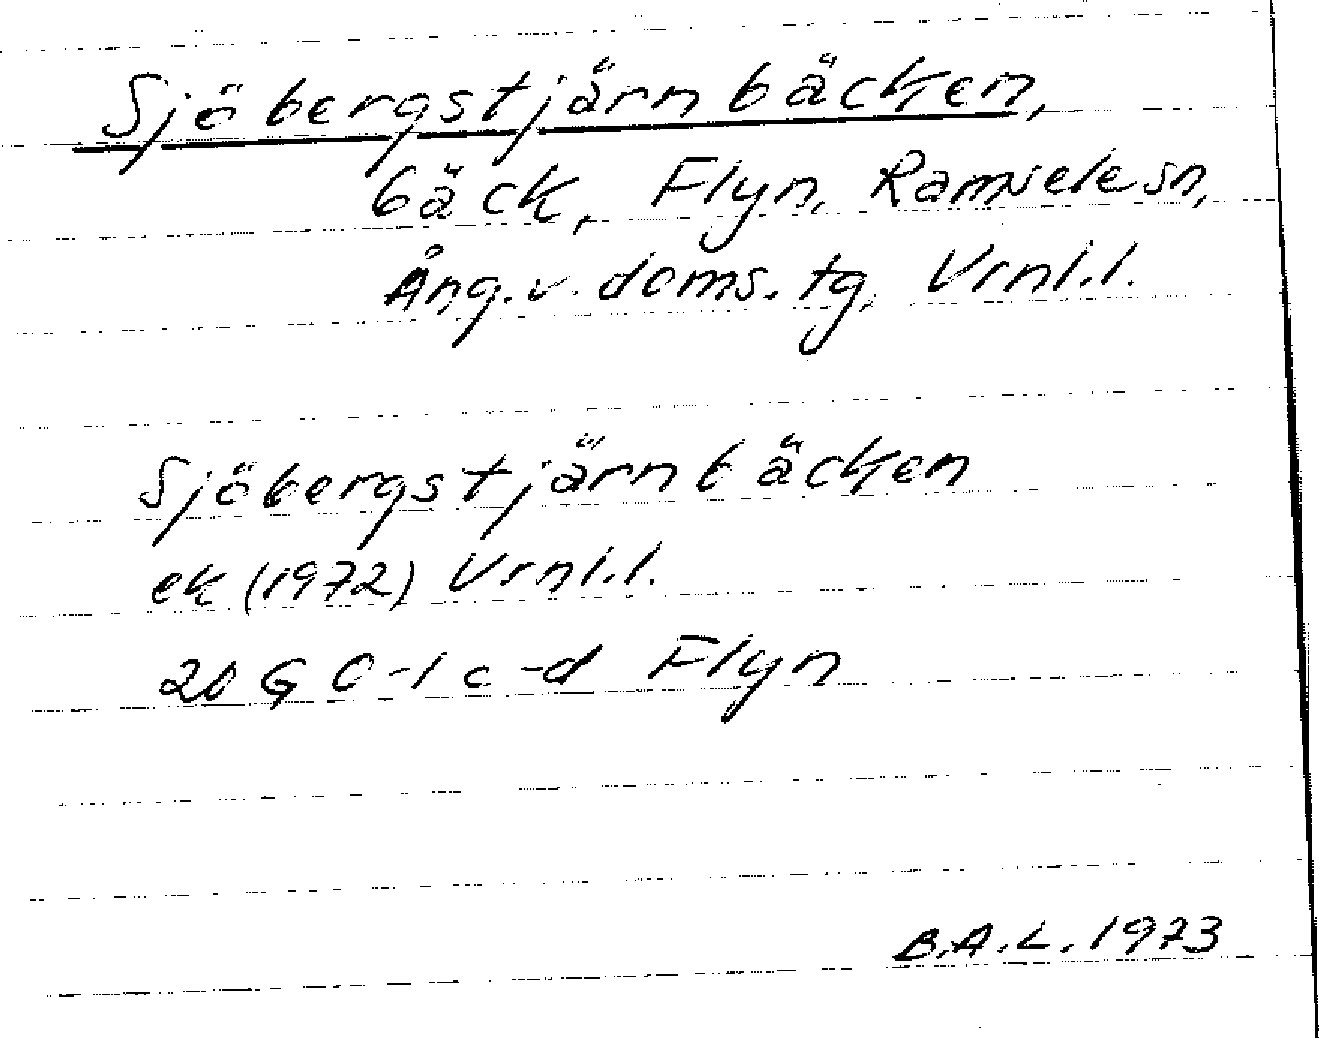 Sjöbergstjärnbäcken,
bäck, Flyn, Ramsele sn,
Ång.v. doms. tg, Vrnl.l.
Sjöbergstjärnbäcken
ek (1972) Vrnl.l.
20 G 0-1 c-d Flyn
B.A.L. 1973